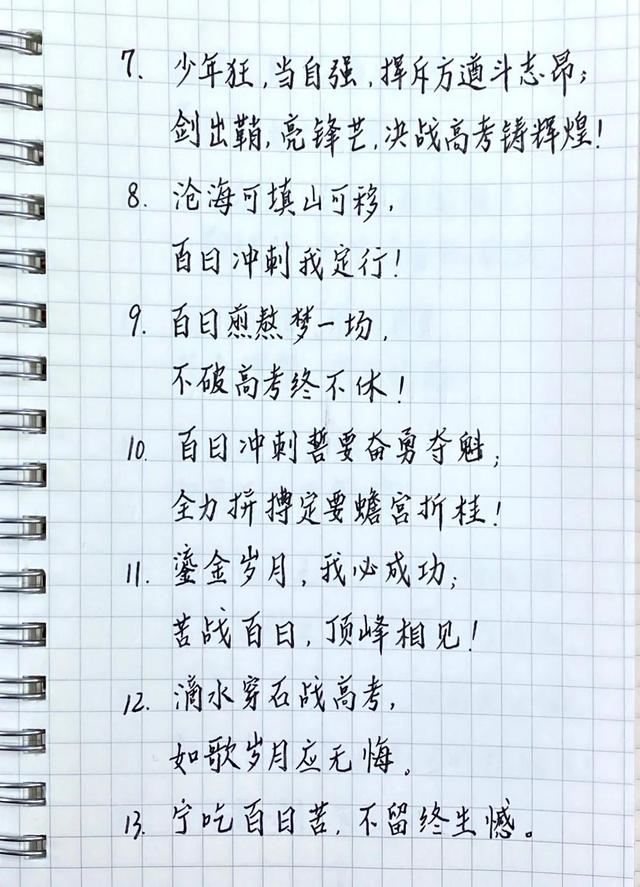 7. 少年狂,当自强,挥斥方遒斗志昂;
剑出鞘,亮锋芒,决战高考铸辉煌!
8. 沧海可填山可移,
百日冲刺我定行!
9. 百日煎熬梦一场,
不破高考终不休!
10. 百日冲刺誓要奋勇夺魁;
全力拼搏定要蟾宫折桂!
11. 鎏金岁月,我必成功;
苦战百日,顶峰相见!
12. 滴水穿石战高考,
如歌岁月应无悔。
13. 宁吃百日苦,不留终生憾。